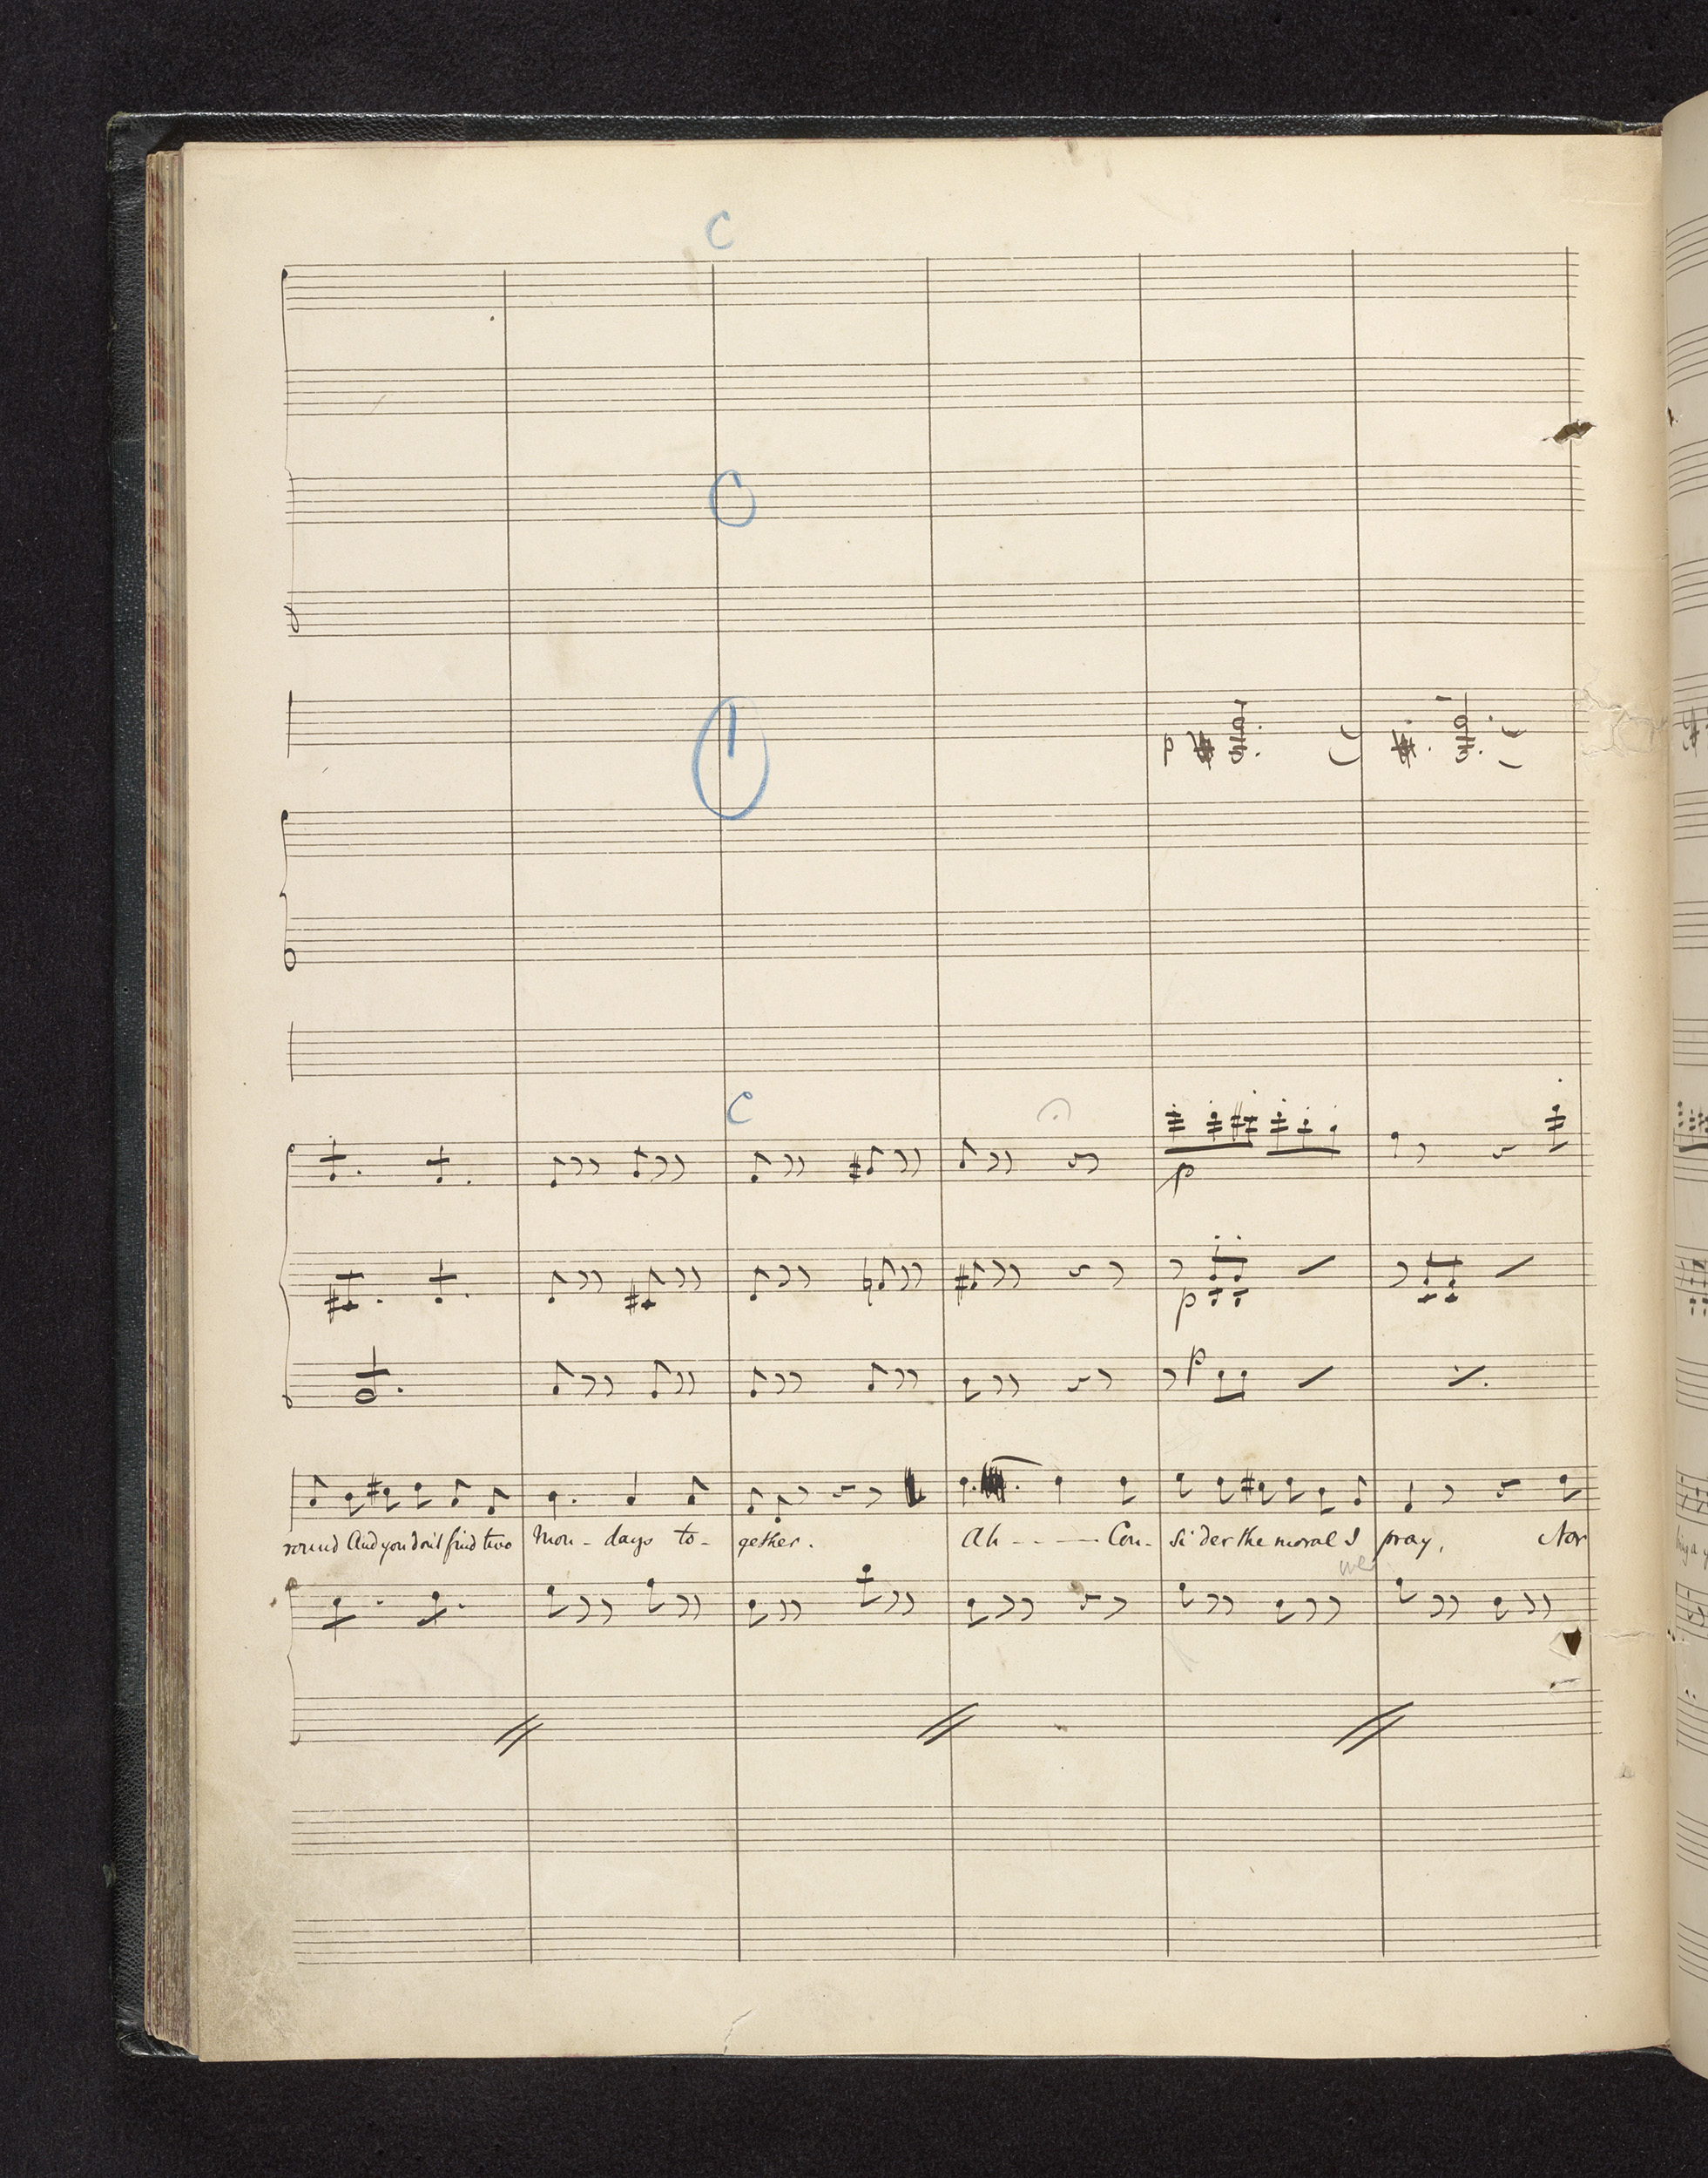 C
C
C
p
C
p
p
p
round And you don't find two Mon - days to - gether. Ah - - - - Con - si der the moral I pray, Nor
we